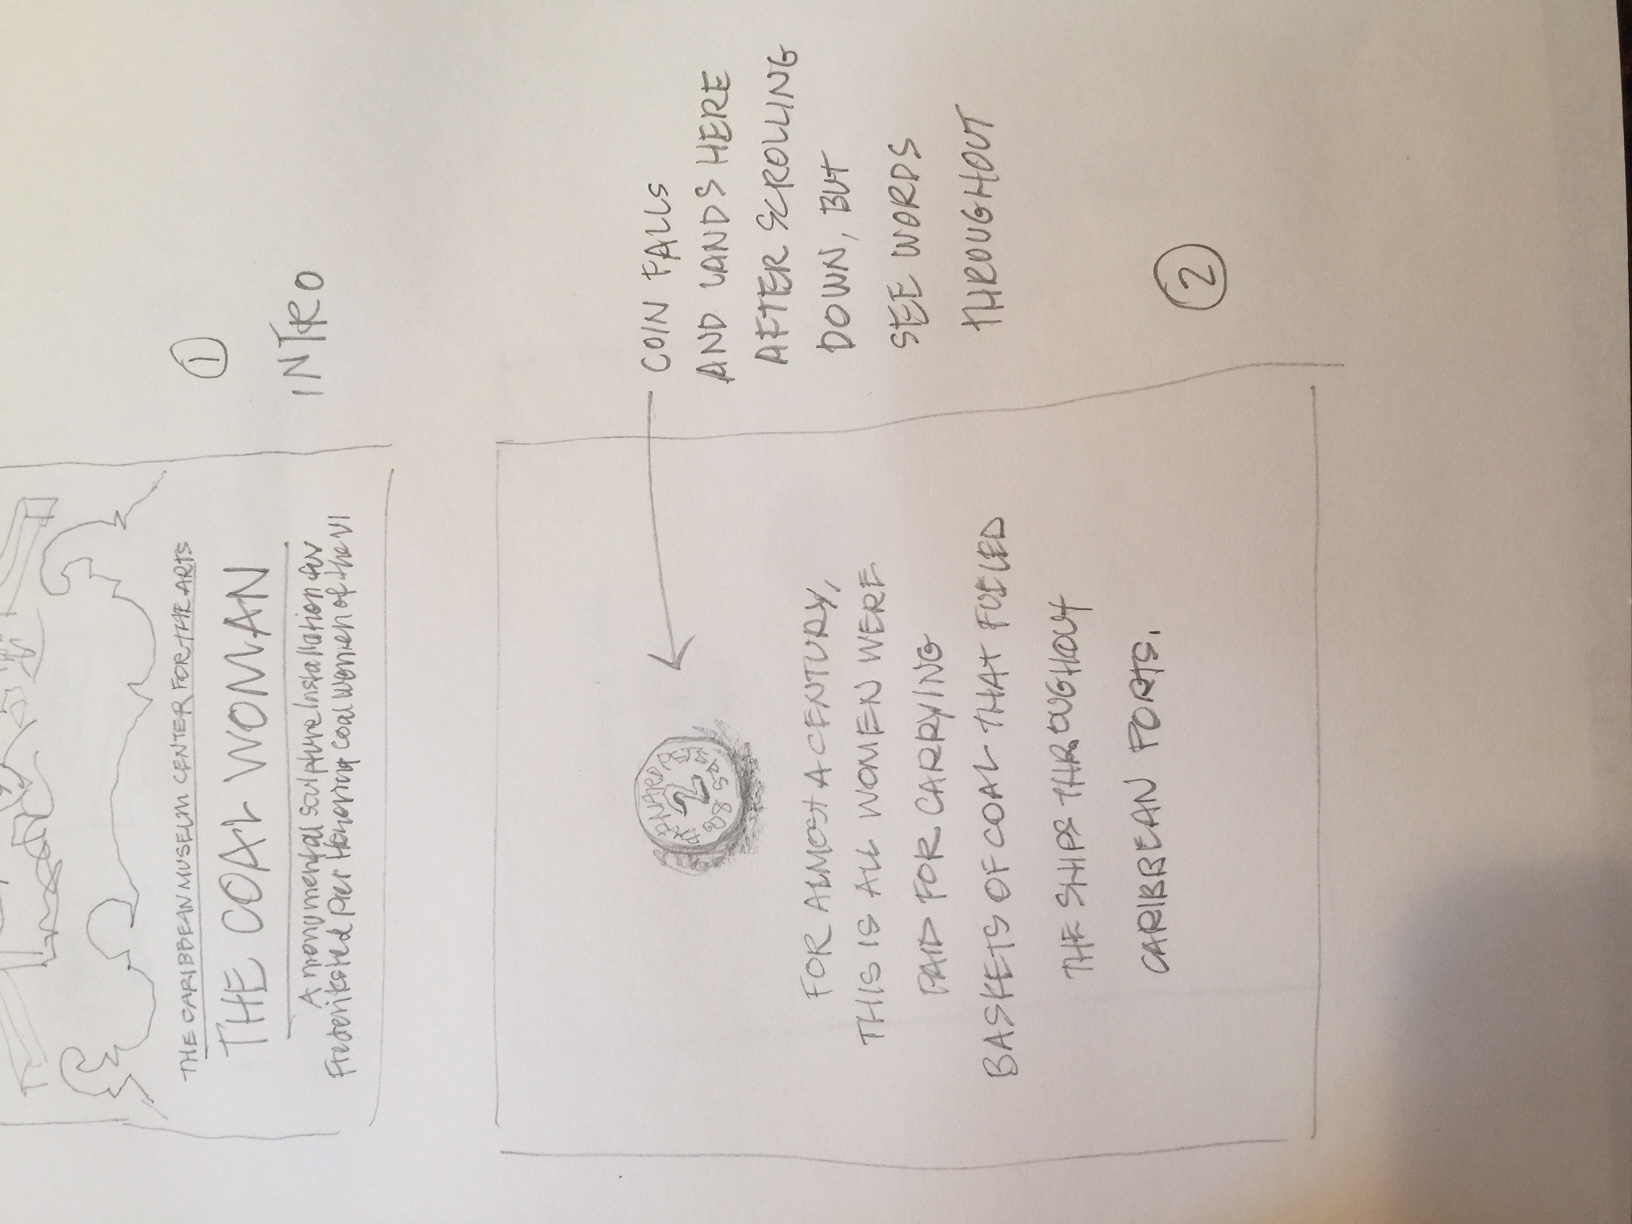 THE CARIBBEAN MUSEUM CENTER FOR THE ARTS
THE COAL WOMAN
A monumental Sculpture Installation for
Frederiksted Pier Honoring Coal Women of the VI
1
INTRO
BERNARD PETERS 88
2
FOR ALMOST A CENTURY,
THIS IS ALL WOMEN WERE
PAID FOR CARRYING
BASKETS OF COAL THAT FUELED
THE SHIPS THROUGHOUT
CARIBBEAN PORTS.
COIN FALLS
AND LANDS HERE
AFTER SCROLLING
DOWN, BUT
SEE WORDS
THROUGHOUT
2